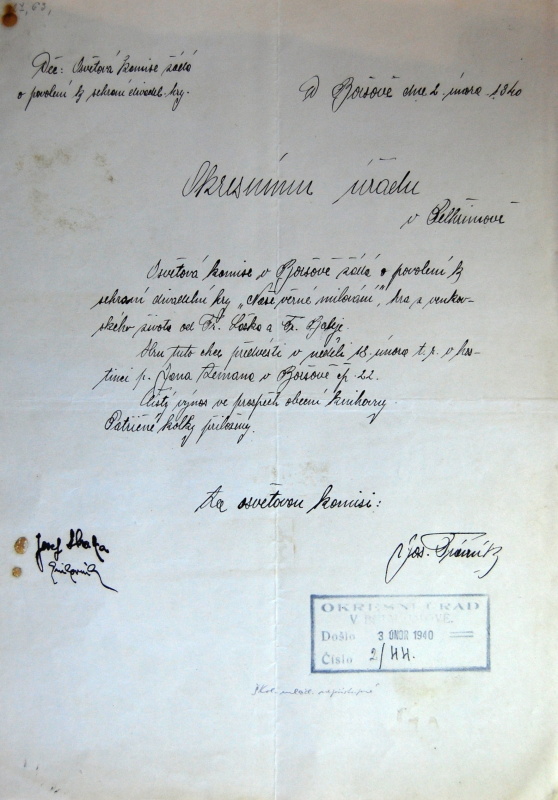 Věc: Osvětová komise žádá
o povolení k sehrání divadel. hry.
V Boršově dne 2. února 1940
Okresnímu úřadu
v Pelhřimově
Osvětová komise v Boršově žádá o povolení k
sehraní divadelní hry „Naše věrné milování", hra z venkov-
ského života od Fr. a Fr.
Hru tuto chce předvésti v neděli 18. února t. r. v hos-
tinci p. Jana Zemana v Boršově čp. 22.
Čistý výnos ve prospěch obecní knihovny.
Patřičné kolky přiloženy.
Za osvětovou komisi:
Josef
Jos.
OKRESNÍ ÚŘAD
V PELHŘIMOVĚ.
Došlo 3 ÚNOR 1940
Číslo 2/44.